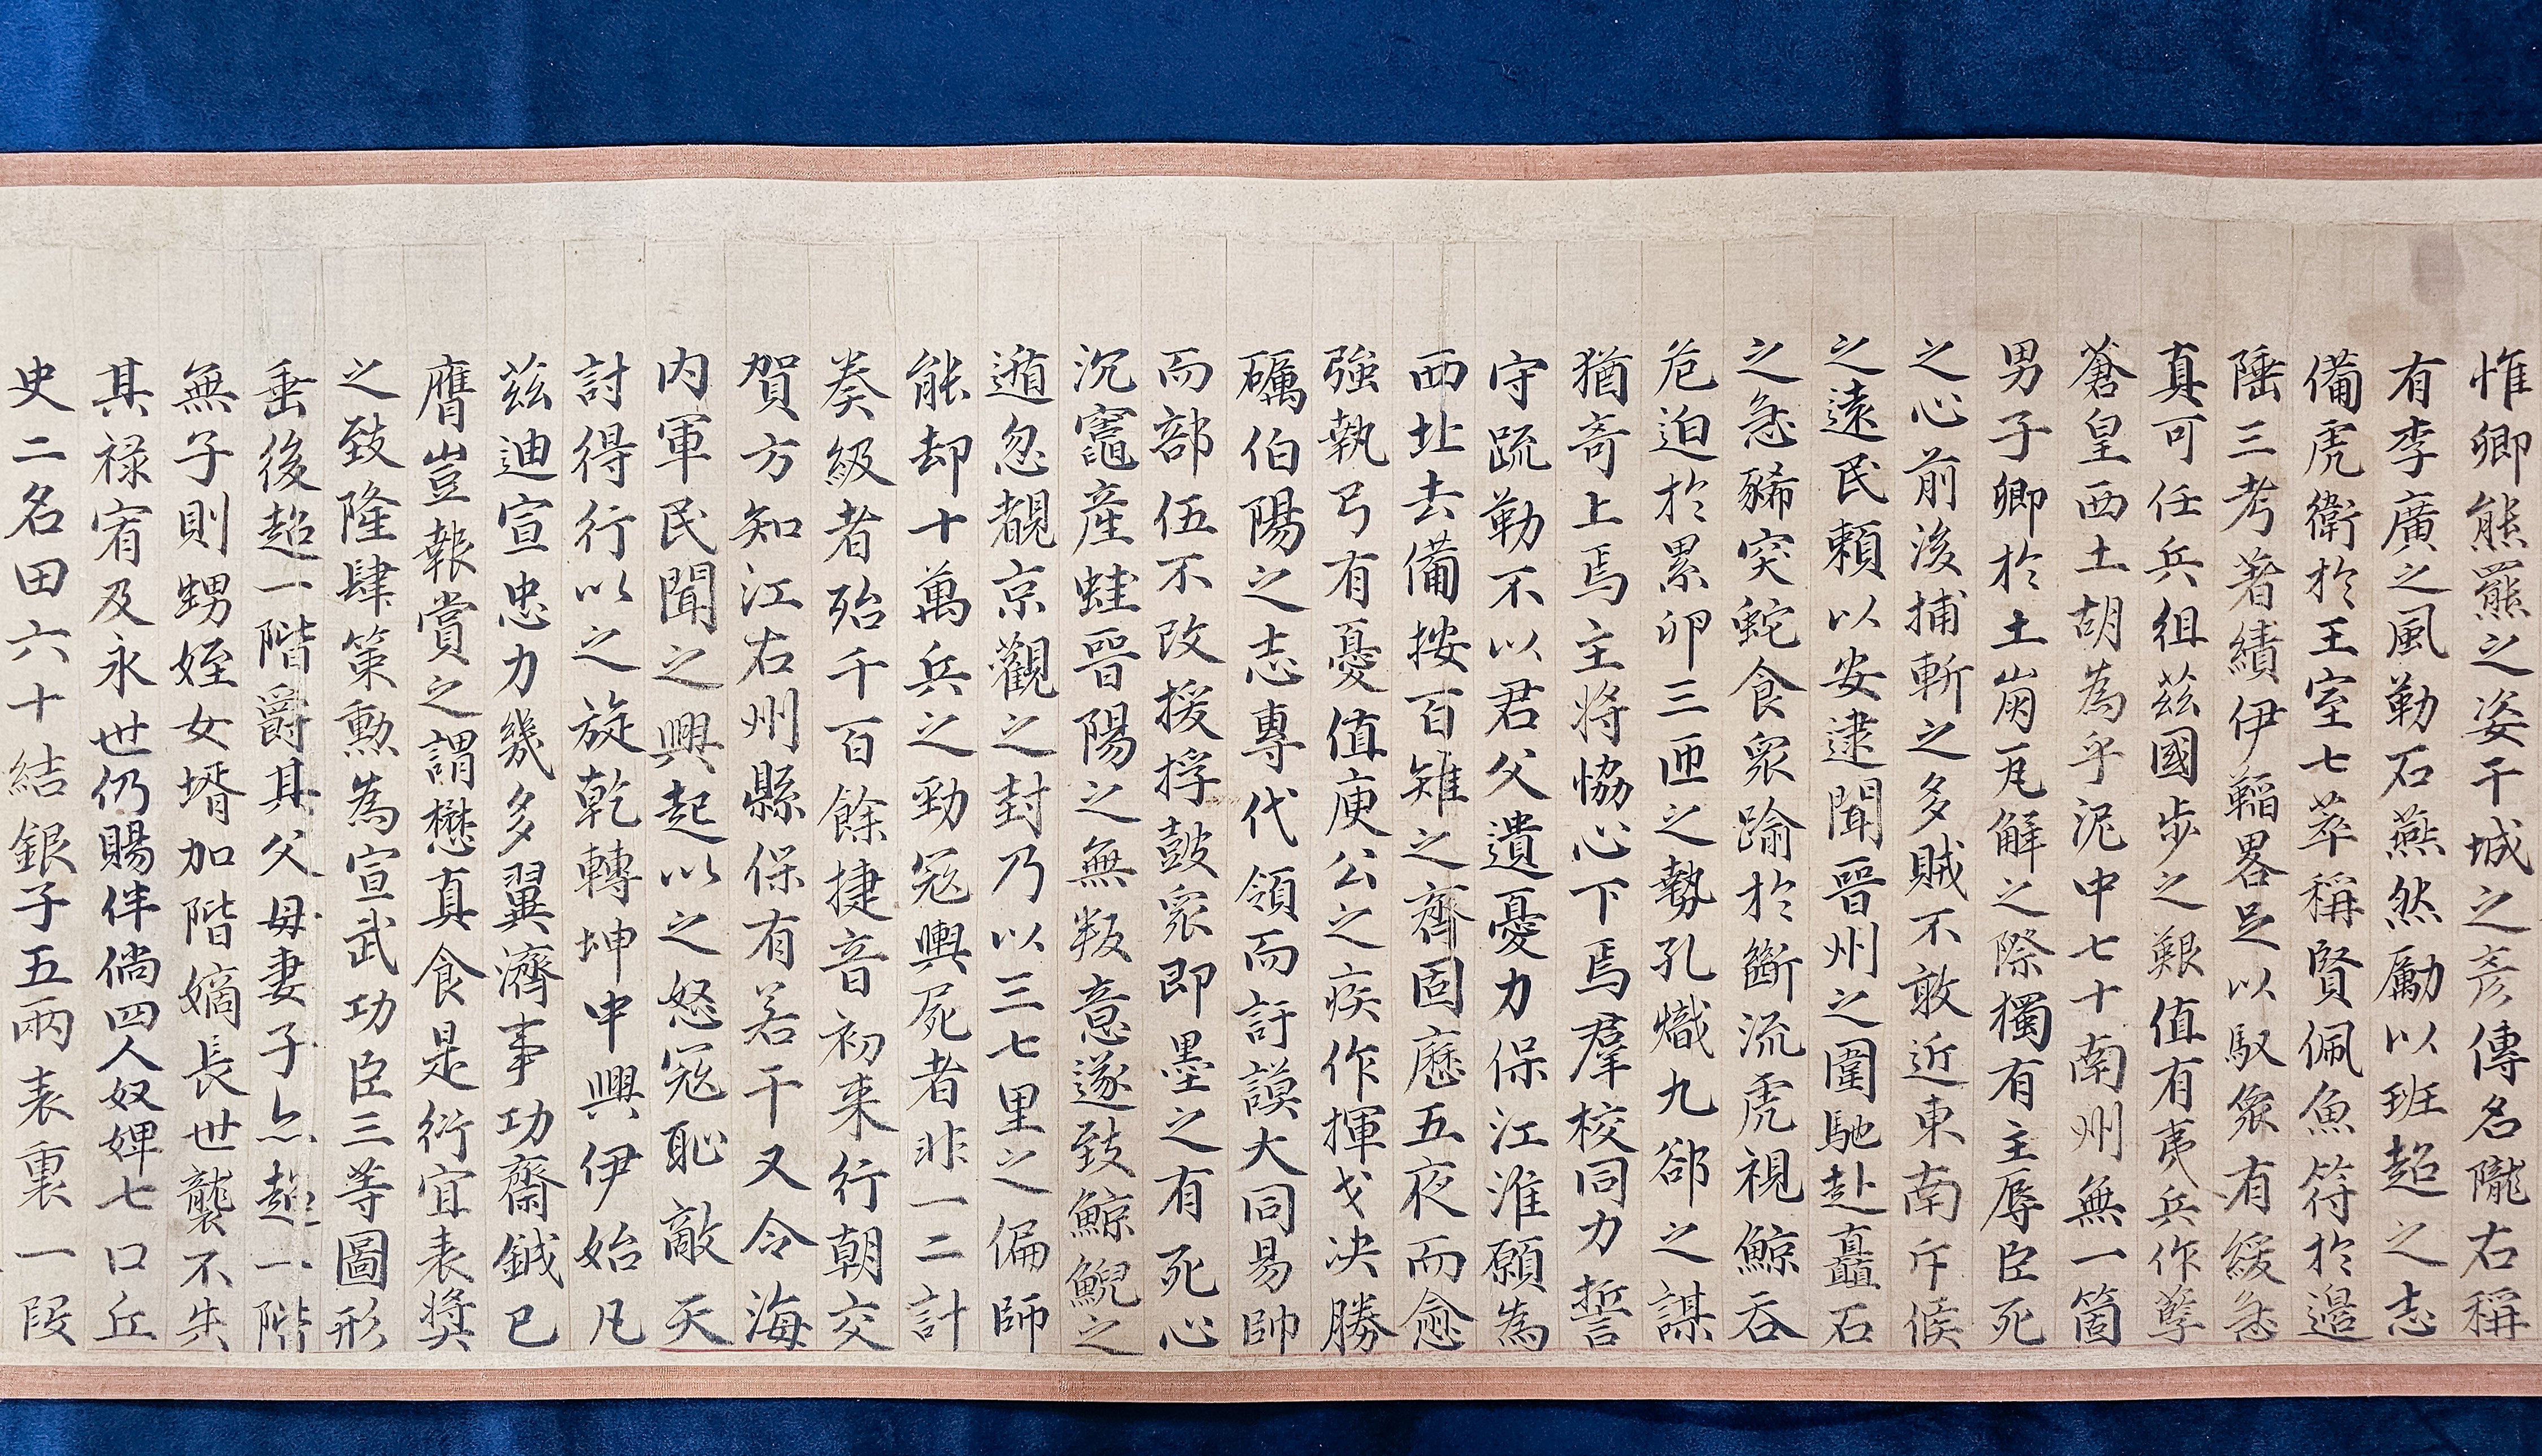 惟卿熊羆之姿干城之彥傳名隴右稱
有李廣之風勒石燕然勵以班超之志
備虎衛於王室七萃稱賢佩魚符於邊
陲三考著績伊韜畧足以馭衆有緩急
真可任兵徂玆國步之艱值有夷兵作孽
蒼皇西土胡為乎泥中七十南州無一箇
男子卿於土崩瓦解之際獨有主辱臣死
之心前後捕斬之多賊不敢近東南斥候
之遠民賴以安逮聞晉州之圍馳赴矗石
之急豨突蛇食衆踰於斷流虎視鯨吞
危迫於累卵三匝之勢孔熾九郤之謀
猶奇上焉主將協心下焉羣校同力誓
守疏勒不以君父遺憂力保江淮願為
西北去備按百雉之齊固歷五夜而愈
強執弓有憂值庾公之疾作揮戈決勝
礪伯陽之志專代領而訏謨大同易帥
而部伍不改援桴鼓衆即墨之有死心
沉竈產蛙晉陽之無叛意遂致鯨鯢之
遁忽覩京觀之封乃以三七里之偏師
能却十萬兵之勁寇輿屍者非一二計
奏級者殆千百餘捷音初來行朝交
賀方知江右州縣保有若干又令海
內軍民聞之興起以之怒寇恥敵天
討得行以之旋乾轉坤中興伊始凡
玆迪宣忠力幾多翼濟事功齋鉞已
膺豈報賞之謂懋真食是衍宜表獎
之致隆肆策勳為宣武功臣三等圖形
垂後超一階爵其父母妻子亦超一階
無子則甥姪女壻加階嫡長世襲不失
其祿宥及永世仍賜伴倘四人奴婢七口丘
史二名田六十結銀子五兩表裏一段